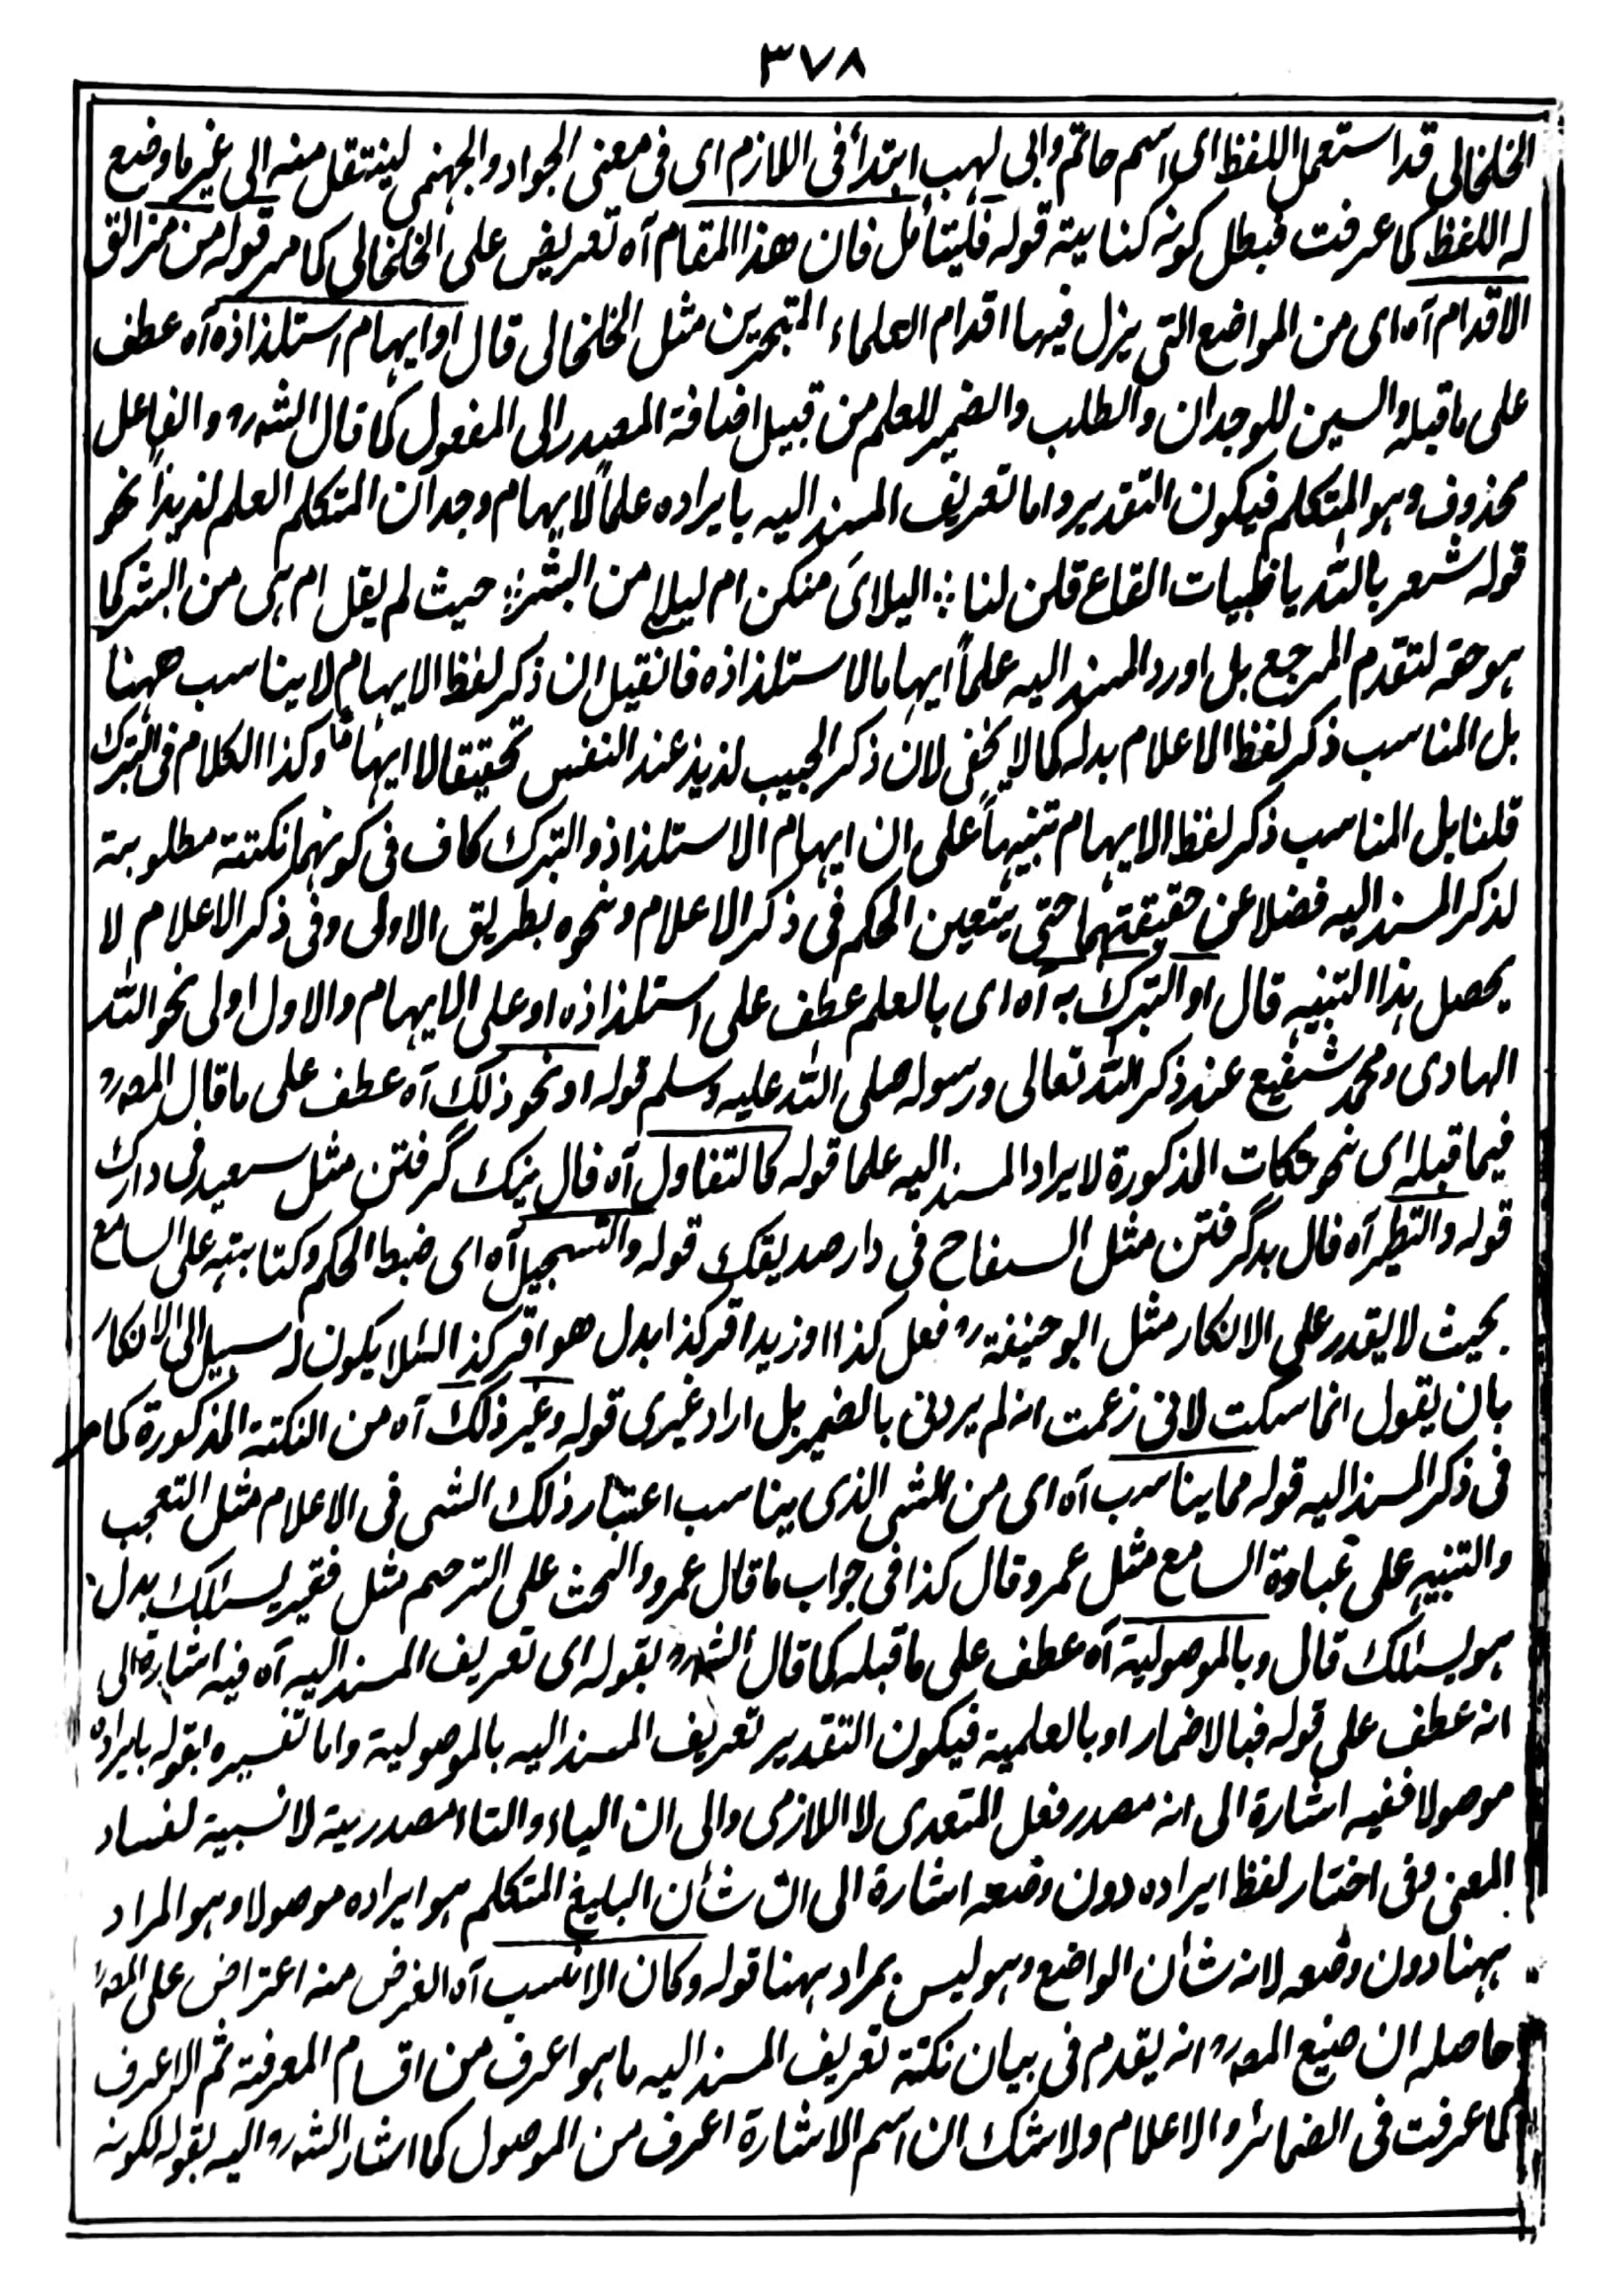 ٣٧٨
الخلخالى قد استعمل اللفظ اى اسم حاتم وابى لهب ابتدأ فى اللازم اى فى معنى الجواد والجهنمى لينتقل منه الى غير ما وضع
له اللفظ كما عرفت فبطل كونه كناية قوله فليتأمل فان هذا المقام آه تعريض على الخلخالى كما مر قوله من مزالق
الاقدام آه اى من المواضع التى يزل فيها اقدام العلماء المتبحرين مثل الخلخالى قال او ايهام استلذاذه آه عطف
على ما قبله والسين للوجدان والطلب والضمير للعلم من قبيل اضافة المصدر الى المفعول كما قال الشهره والفاعل
محذوف وهو المتكلم فيكون التقدير واما تعريف المسند اليه بايراده علماً لايهام وجدان المتكلم العلم لذيذاً نحو
قوله شعر بالله يا ظبيات القاع قلن لنا ؞ اليلاى منكن ام ليلى من البشر ؞ حيث لم يقل ام هى من البشر كما
هو حقه لتقدم المرجع بل اورد المسند اليه علماً ايهاما لاستلذاذه فانقيل ان ذكر لفظ الايهام لا يناسب ههنا
بل المناسب ذكر لفظ الاعلام بدله كما لا يخفى لان ذكر الحبيب لذيذ عند النفس تحقيقا لا ايهاماً وكذا الكلام فى التبرك
قلنا بل المناسب ذكر لفظ الايهام تنبيهاً على ان ايهام الاستلذاذ والتبرك كاف فى كونهما نكتة مطلوبة
لذكر المسند اليه فضلا عن حقيقتهما حتى يتعين الحكم فى ذكر الاعلام ونحوه بطريق الاولى وفى ذكر الاعلام لا
يحصل هذا التنبيه قال او التبرك به آه اى بالعلم عطف على استلذاذه او على الايهام والاول اولى نحو الله
الهادى ومحمد شفيع عند ذكر الله تعالى ورسوله صلى الله عليه وسلم قوله او نحو ذلك آه عطف على ما قال المصره
فيما قبله اى نحو نكات المذكورة لايراد المسند اليه علما قوله كالتفاول آه فال نيك گرفتن مثل سعيد فى دارك
قوله والتطير آه فال بد گرفتن مثل السفاح فى دار صديقك قوله والتسجيل آه اى ضبط الحكم وكتابته على السامع
بحيث لا يقدر على الانكار مثل ابو حنيفة ره فعل كذا او زيد اقر كذا بدل هو اقر كذا لئلا يكون له سبيل الى الانكار
بان يقول انما سكت لانى زعمت انه لم يردنى بالضمير بل اراد غيرى قوله وغير ذلك آه من النكتة المذكورة كما مر
فى ذكر المسند اليه قوله مما يناسب آه اى من الشى الذى يناسب اعتبار ذلك الشى فى الاعلام مثل التعجب
والتنبيه على غباوة السامع مثل عمرو قال كذا فى جواب ما قال عمرو والحث على الترحم مثل فقير يسالك بدل
هو يسئلك قال وبالموصولية آه عطف على ما قبله كما قال الشهره بقوله اى تعريف المسند اليه آه فيه اشارة الى
انه عطف على قوله فبالاضمار او بالعلمية فيكون التقدير تعريف المسند اليه بالموصولية واما تفسيره بقوله بايراده
موصولا ففيه اشارة الى انه مصدر فعل المتعدى لا اللازمى والى ان الياء والتاء مصدرية لا نسبية لفساد
المعنى وفى اختار لفظ ايراده دون وضعه اشارة الى ان شأن البليغ المتكلم هو ايراده موصولا وهو المراد
ههنا دون وضعه لانه شأن الواضع وهو ليس بمراد ههنا قوله وكان الانسب آه الغرض منه اعتراض على المصره
حاصله ان صنيع المصره انه يقدم فى بيان نكتة تعريف المسند اليه ما هو اعرف من اقسام المعرفة ثم الاعرف
كما عرفت فى الضمائر والاعلام ولا شك ان اسم الاشارة اعرف من الموصول كما اشار الشهره اليه بقوله لكونه